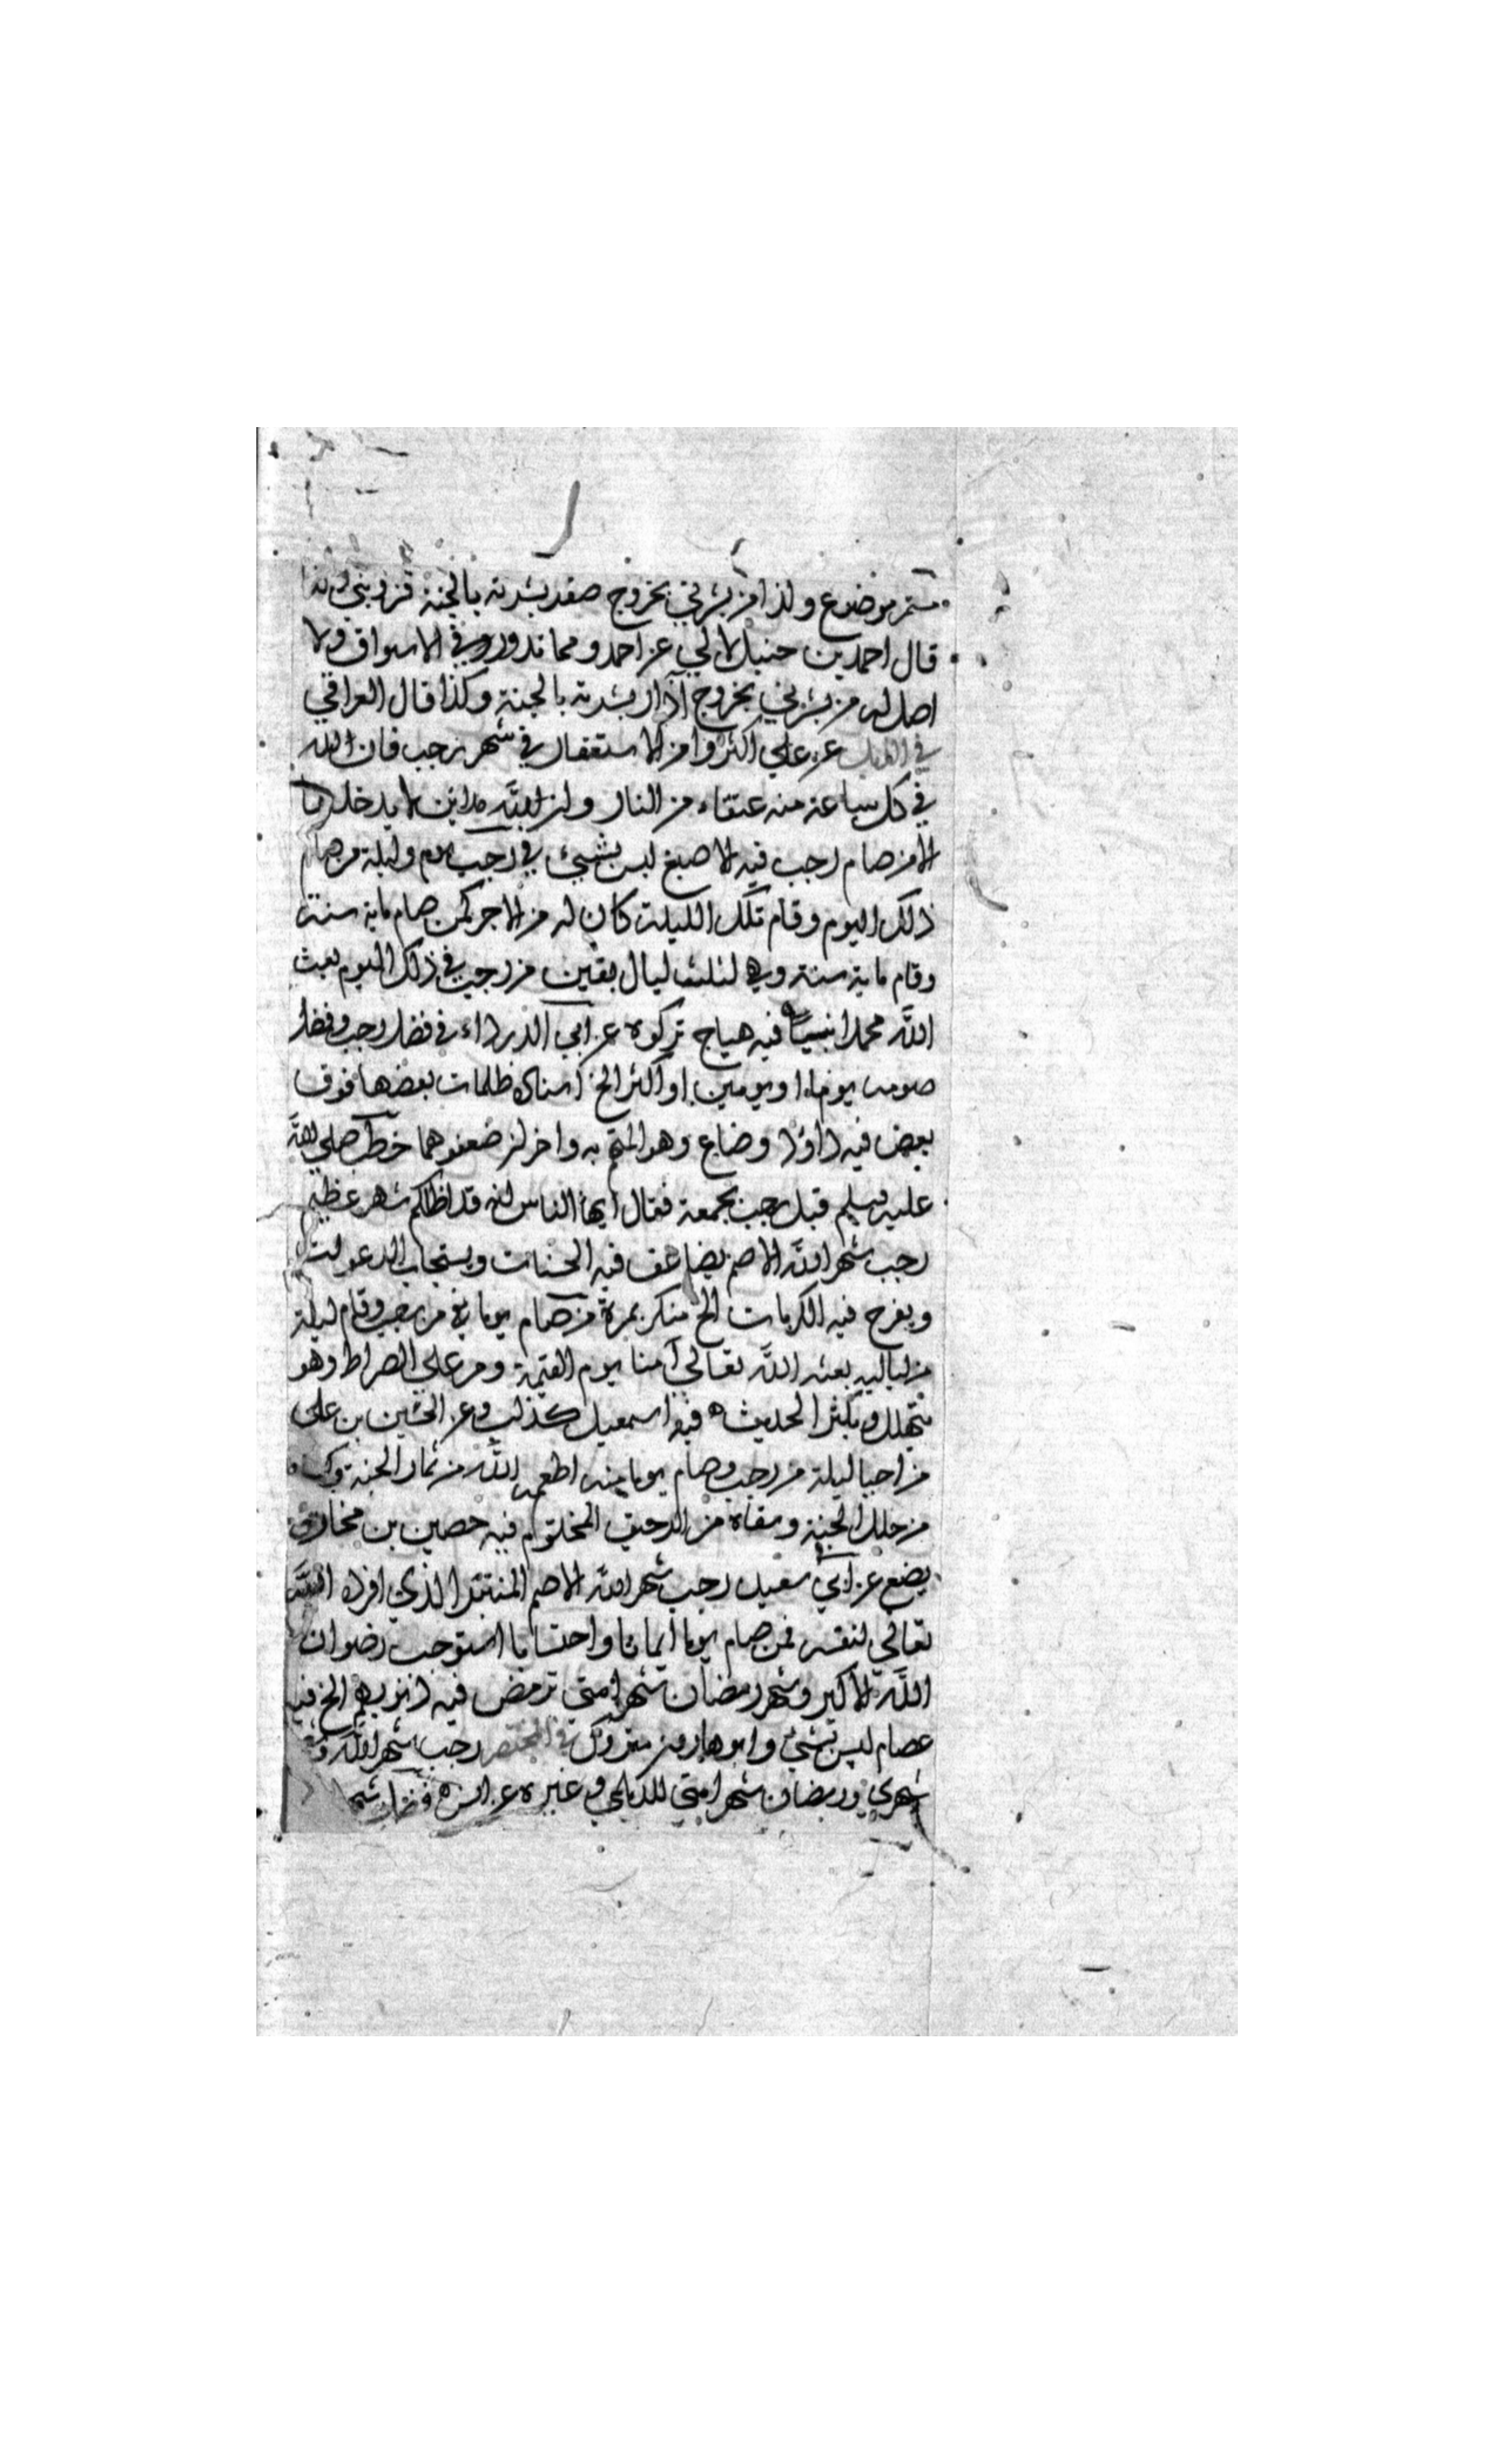 مستمر موضوع وكذا من بشرني بخروج صفر بشرته بالجنة قزويني وكذا
قال احمد بن حنبل لالي عن احمد ومما تدور في الاسواق ولا
اصل له من بشرني بخروج آذار بشرته بالجنة وكذا قال العراقي
في الذيل عن علي اكثروا من الاستغفار في شهر رجب فان لله
في كل ساعة منه عتقاء من النار وان لله مداين لا يدخلها
الا من صام رجب فيه الاصبغ ليس بشيئ في رجب يوم وليلة من صام
ذلك اليوم وقام تلك الليلة كان له من الاجر كمن صام ماية سنة
وقام ماية سنة وهي لثلث ليال بقين من رجب في ذلك اليوم بعث
الله محمدا نبيا فيه هياج تركوه عن ابي الدرداء في فضل رجب وفضل
صومه يوما او يومين او اكثر الخ اسناده ظلمات بعضها فوق
بعض فيه داود وضاع وهو المتهم به واخران ضعفوهما خطب صلى الله
عليه وسلم قبل رجب بجمعة فقال ايها الناس انه قد اظلكم شهر عظيم
رجب شهر الله الاصم يضاعف فيه الحسنات ويستجاب الدعوات
ويفرج فيه الكربات الخ منكر بمرة من صام يوما من رجب وقام ليلة
من لياليه بعثه الله تعالى آمنا يوم القيمة ومر على الصراط وهو
يتهلل ويكبر الحديث فيه اسمعيل كذاب وعن الحسين بن علي
من احيا ليلة من رجب وصام يوما منه اطعمه الله من ثمار الجنة وكساه
من حلل الجنة وسقاه من الرحيق المختوم فيه حصين بن مخارق
يضع عن ابي سعيد رجب شهر الله الاصم المنتبر الذي افرده الله
تعالى لنفسه فمن صام يوما ايمانا واحتسابا استوجب رضوان
الله الاكبر وشهر رمضان شهر امتي ترمض فيه ذنوبهم الخ فيه
عصام ليس بشيئ وابو هارون متروك في المختصر رجب شهر الله و
شهري ورمضان شهر امتي للديلمي وغيره عن انس فضل شهر